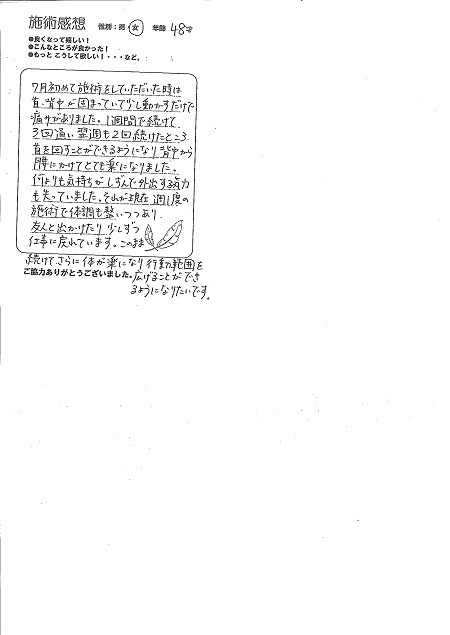 施術感想 性別：男 女 年齢 48才
●良くなって嬉しい！
●こんなところが良かった！
●もっと こうして欲しい！・・・など。
7月初めて施術をしていただいた時は
首、背中が固まっていて少し動かすだけで
痛みがありました。1週間で続けて
3回通い翌週も2回続けたところ
首を回すことができるようになり背中から
腰にかけてとても楽になりました。
何よりも気持ちがしずんで外出する気力
も失っていました。それが現在週1度の
施術で体調も整いつつあり
友人と出かけたり少しずつ
仕事に戻れています。このまま
続けてさらに体が楽になり行動範囲を
ご協力ありがとうございました。広げることができ
るようになりたいです。